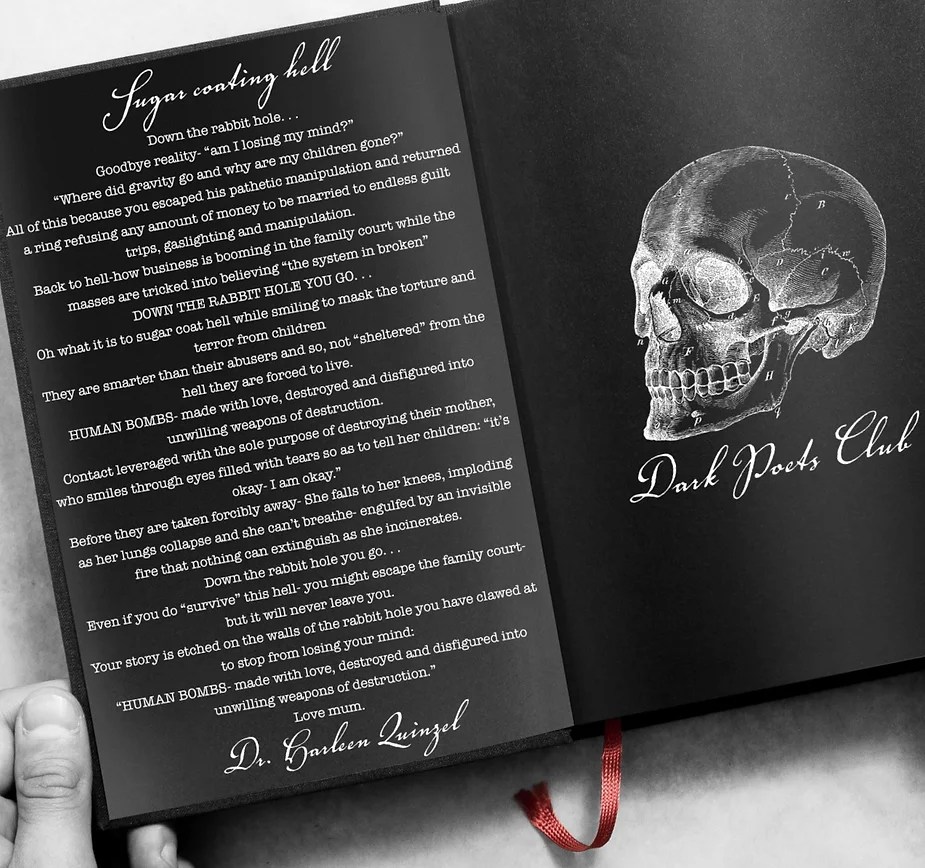 Sugar coating hell
Down the rabbit hole. . .
Goodbye reality- “am I losing my mind?”
“Where did gravity go and why are my children gone?”
All of this because you escaped his pathetic manipulation and returned
a ring refusing any amount of money to be married to endless guilt
trips, gaslighting and manipulation.
Back to hell-how business is booming in the family court while the
masses are tricked into believing “the system in broken”
DOWN THE RABBIT HOLE YOU GO. . .
Oh what it is to sugar coat hell while smiling to mask the torture and
terror from children
They are smarter than their abusers and so, not “sheltered” from the
hell they are forced to live.
HUMAN BOMBS- made with love, destroyed and disfigured into
unwilling weapons of destruction.
Contact leveraged with the sole purpose of destroying their mother,
who smiles through eyes filled with tears so as to tell her children: “it’s
okay- I am okay.”
Before they are taken forcibly away- She falls to her knees, imploding
as her lungs collapse and she can’t breathe- engulfed by an invisible
fire that nothing can extinguish as she incinerates.
Down the rabbit hole you go. . .
Even if you do “survive” this hell- you might escape the family court-
but it will never leave you.
Your story is etched on the walls of the rabbit hole you have clawed at
to stop from losing your mind:
“HUMAN BOMBS- made with love, destroyed and disfigured into
unwilling weapons of destruction.”
Love mum.
Dr. Harleen Quinzel
Dark Poets Club